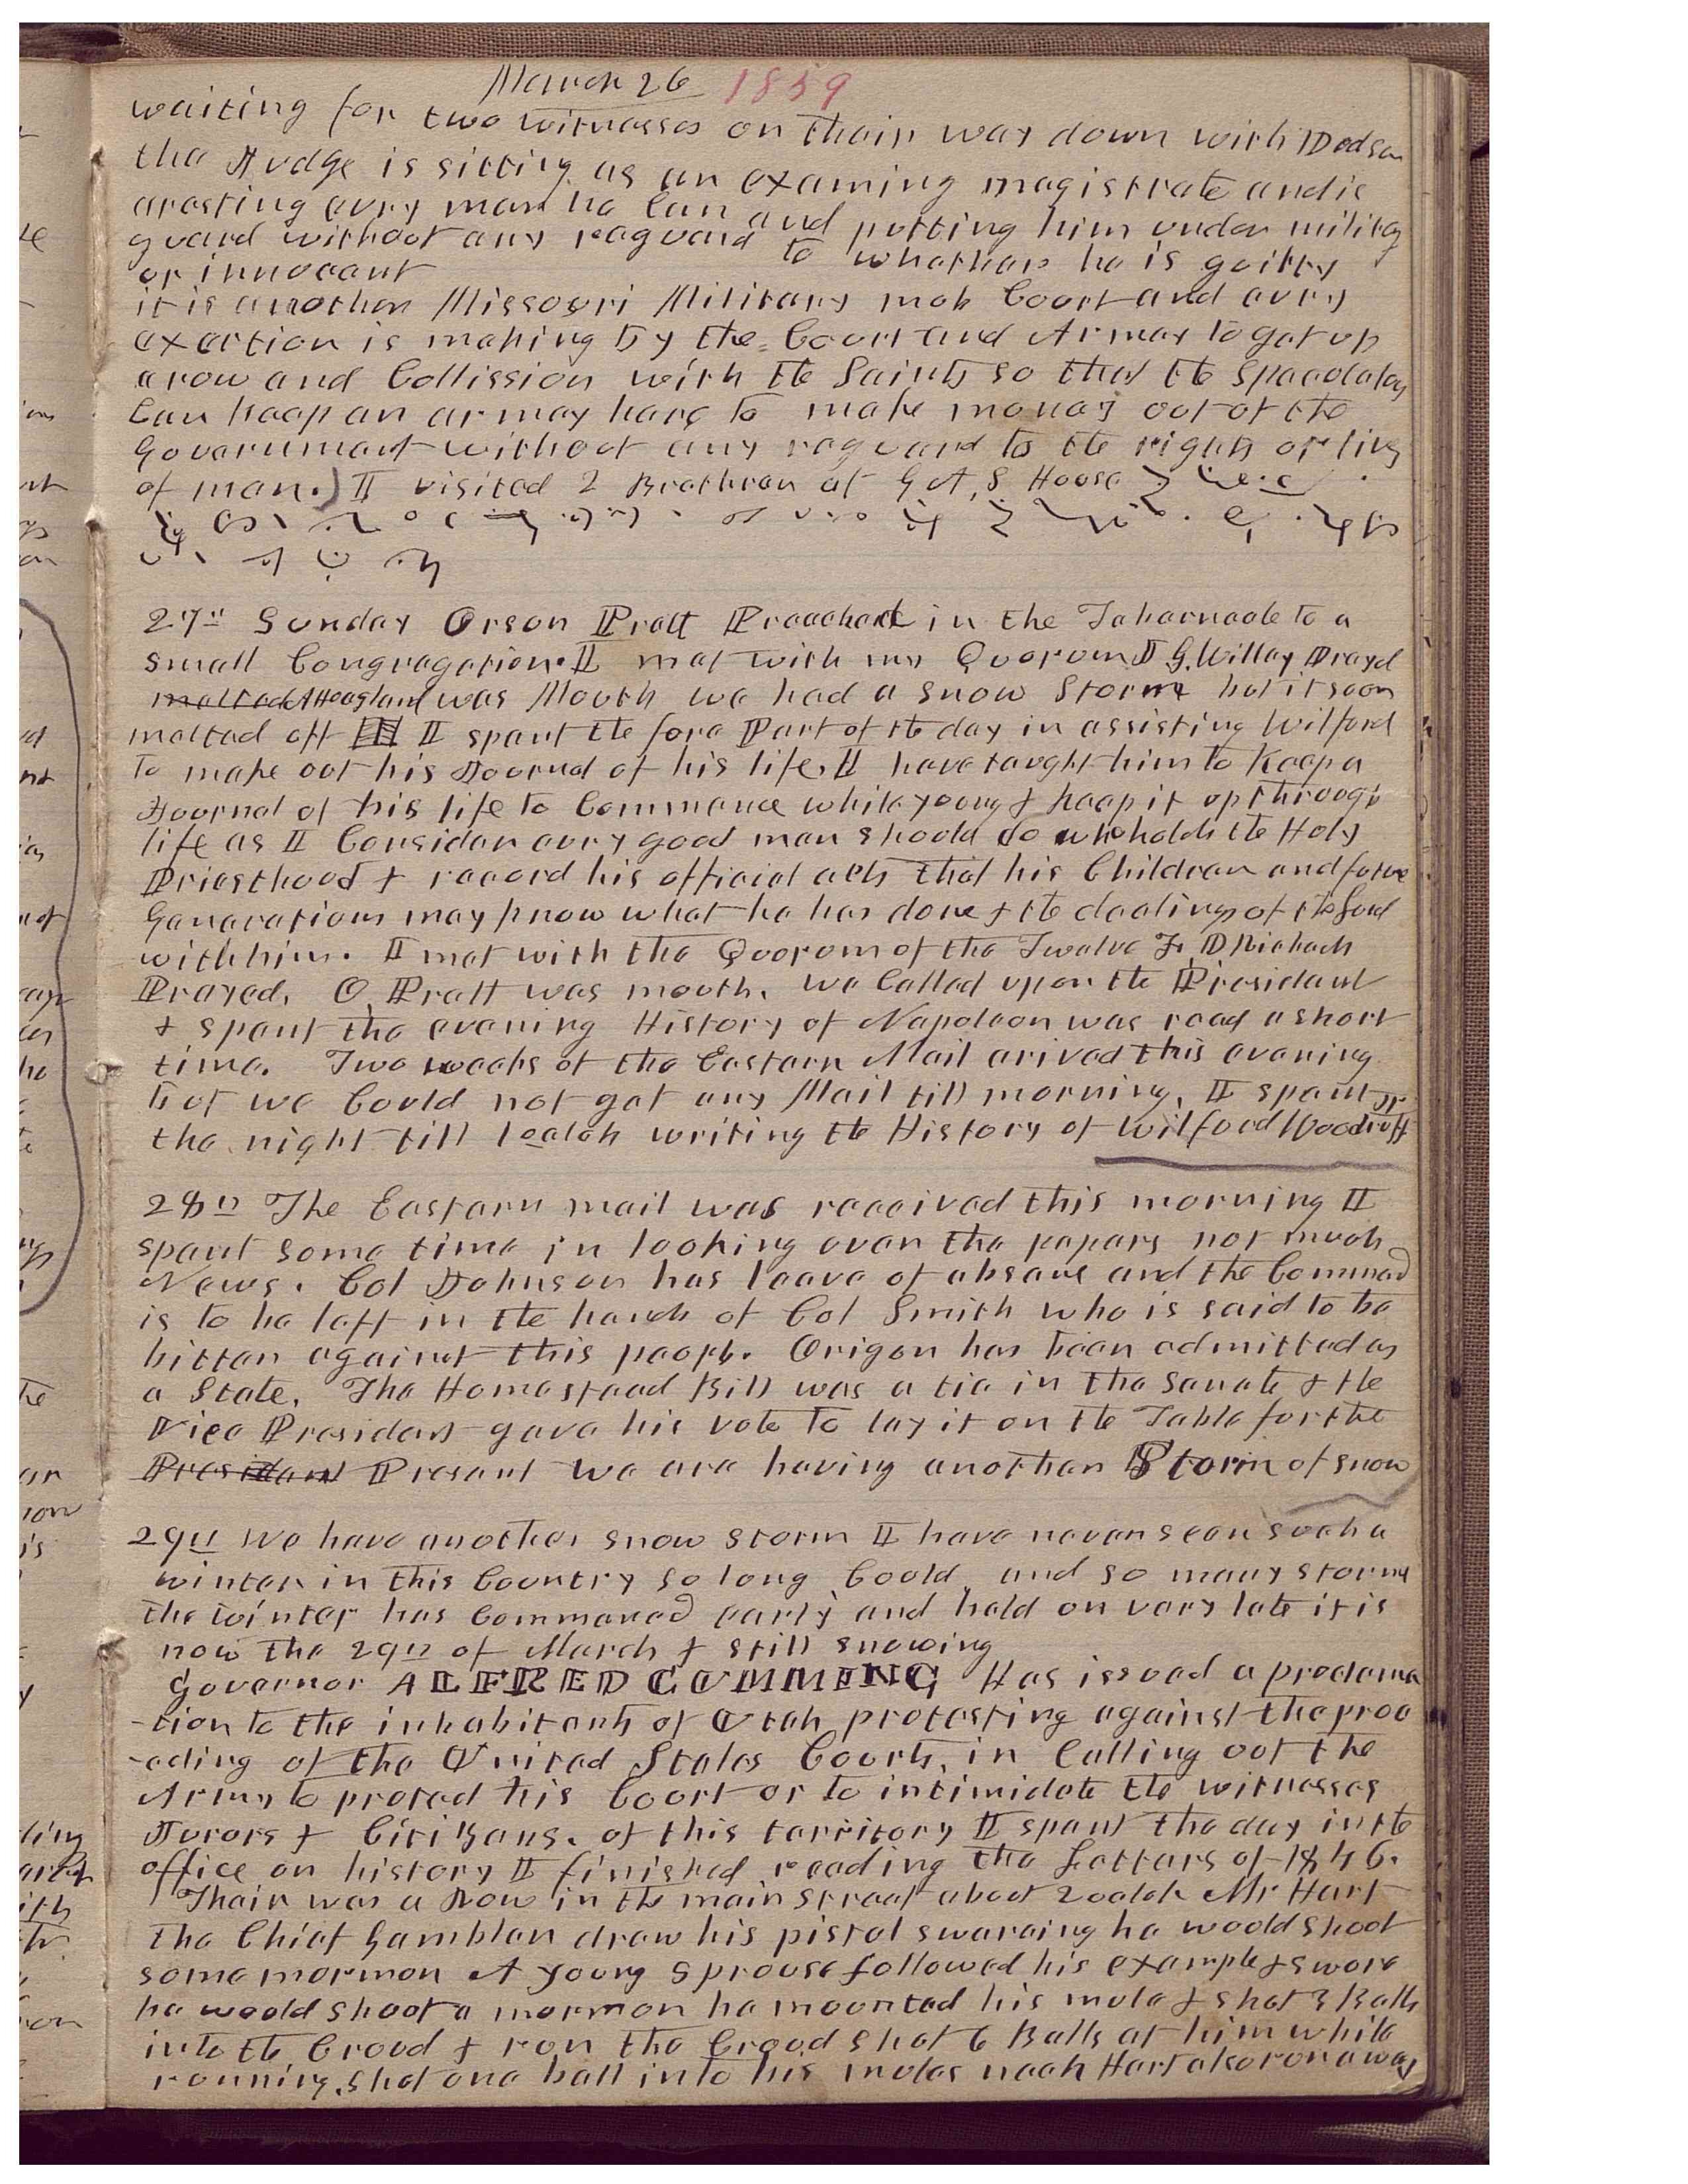 March 26 1859
waiting for two witnesses on their way down with Dodson
the Judge is sitting as an examing magistrate and is
aresting evry man he Can and putting him under military
guard without any reguard to whether he is guilty
or innocent
it is another Missouri Military mob Court and evry
exertion is making by the Court and Armey to get up
a row and Collission with the Saints so that the Speculators
Can keep an armey here to make money out of the
Government without any reguard to the rights or lives
of men.) I visited 2 Brethren at G A, S House
27th Sunday Orson Pratt Preached in the Tabernacle to a
small Congregation. I met with my Quorum J G. Willey Prayed
A Hoagland was Mouth we had a snow Storm but it soon
melted off I spent the fore Part of the day in assisting Wilford
to make out his Journal of his life. I have taught him to Keep a
Journal of his life to Commence while young & keep it up through
life as I Consider evry good man should do who holds the Holy
Priesthood & record his official acts that his Children and future
Generations may know what he has done & the dealings of the Lord
with him. I met with the Quorum of the Twelve F. D Richards
Prayed. O. Pratt was mouth. we Called upon the President
& spent the evening History of Napoleon was read a short
time. Two weeks of the Eastern Mail arived this evening
but we Could not get any Mail till morning. I spent
the night till 1 oclok writing the History of Wilford Woodruff Jr
28th The Eastern mail was received this morning I
spent some time in looking over the papers not much
News. Col Johnson has leave of absence and the Command
is to be left in the hands of Col Smith who is said to be
bitter against this people. Origon has been admitted as
a State. The Homestead Bill was a tie in the Senate & the
Vice President gave his vote to lay it on the Table for the
President Present we are having another Storm of snow
29th We have another snow storm I have never seen such a
winter in this Country so long, Could, and so many storms
the winter has Commenced early and held on very late it is
now the 29th of March & still snowing
Governor ALFRED CUMMING Has issued a proclama
-tion to the inhabitants of Utah protesting against the proce
-eding of the United States Courts, in Calling out the
Army to protect his Court or to intimidate the witnesses
Jurors & Citizens. of this territory I spent the day in the
office on history I finished reading the Letters of 1846.
Their was a Row in the main street about 2 oclok Mr Hart
the Chief Gambler drew his pistol swaraing he would shoot
some mormon A young Sprouse followed his example & swore
he would shoot a mormon he mounted his mule & shot 3 Balls
into the Croud & run the Croud shot 6 Balls at him while
running. shot one ball into his mules neck Hart also run away